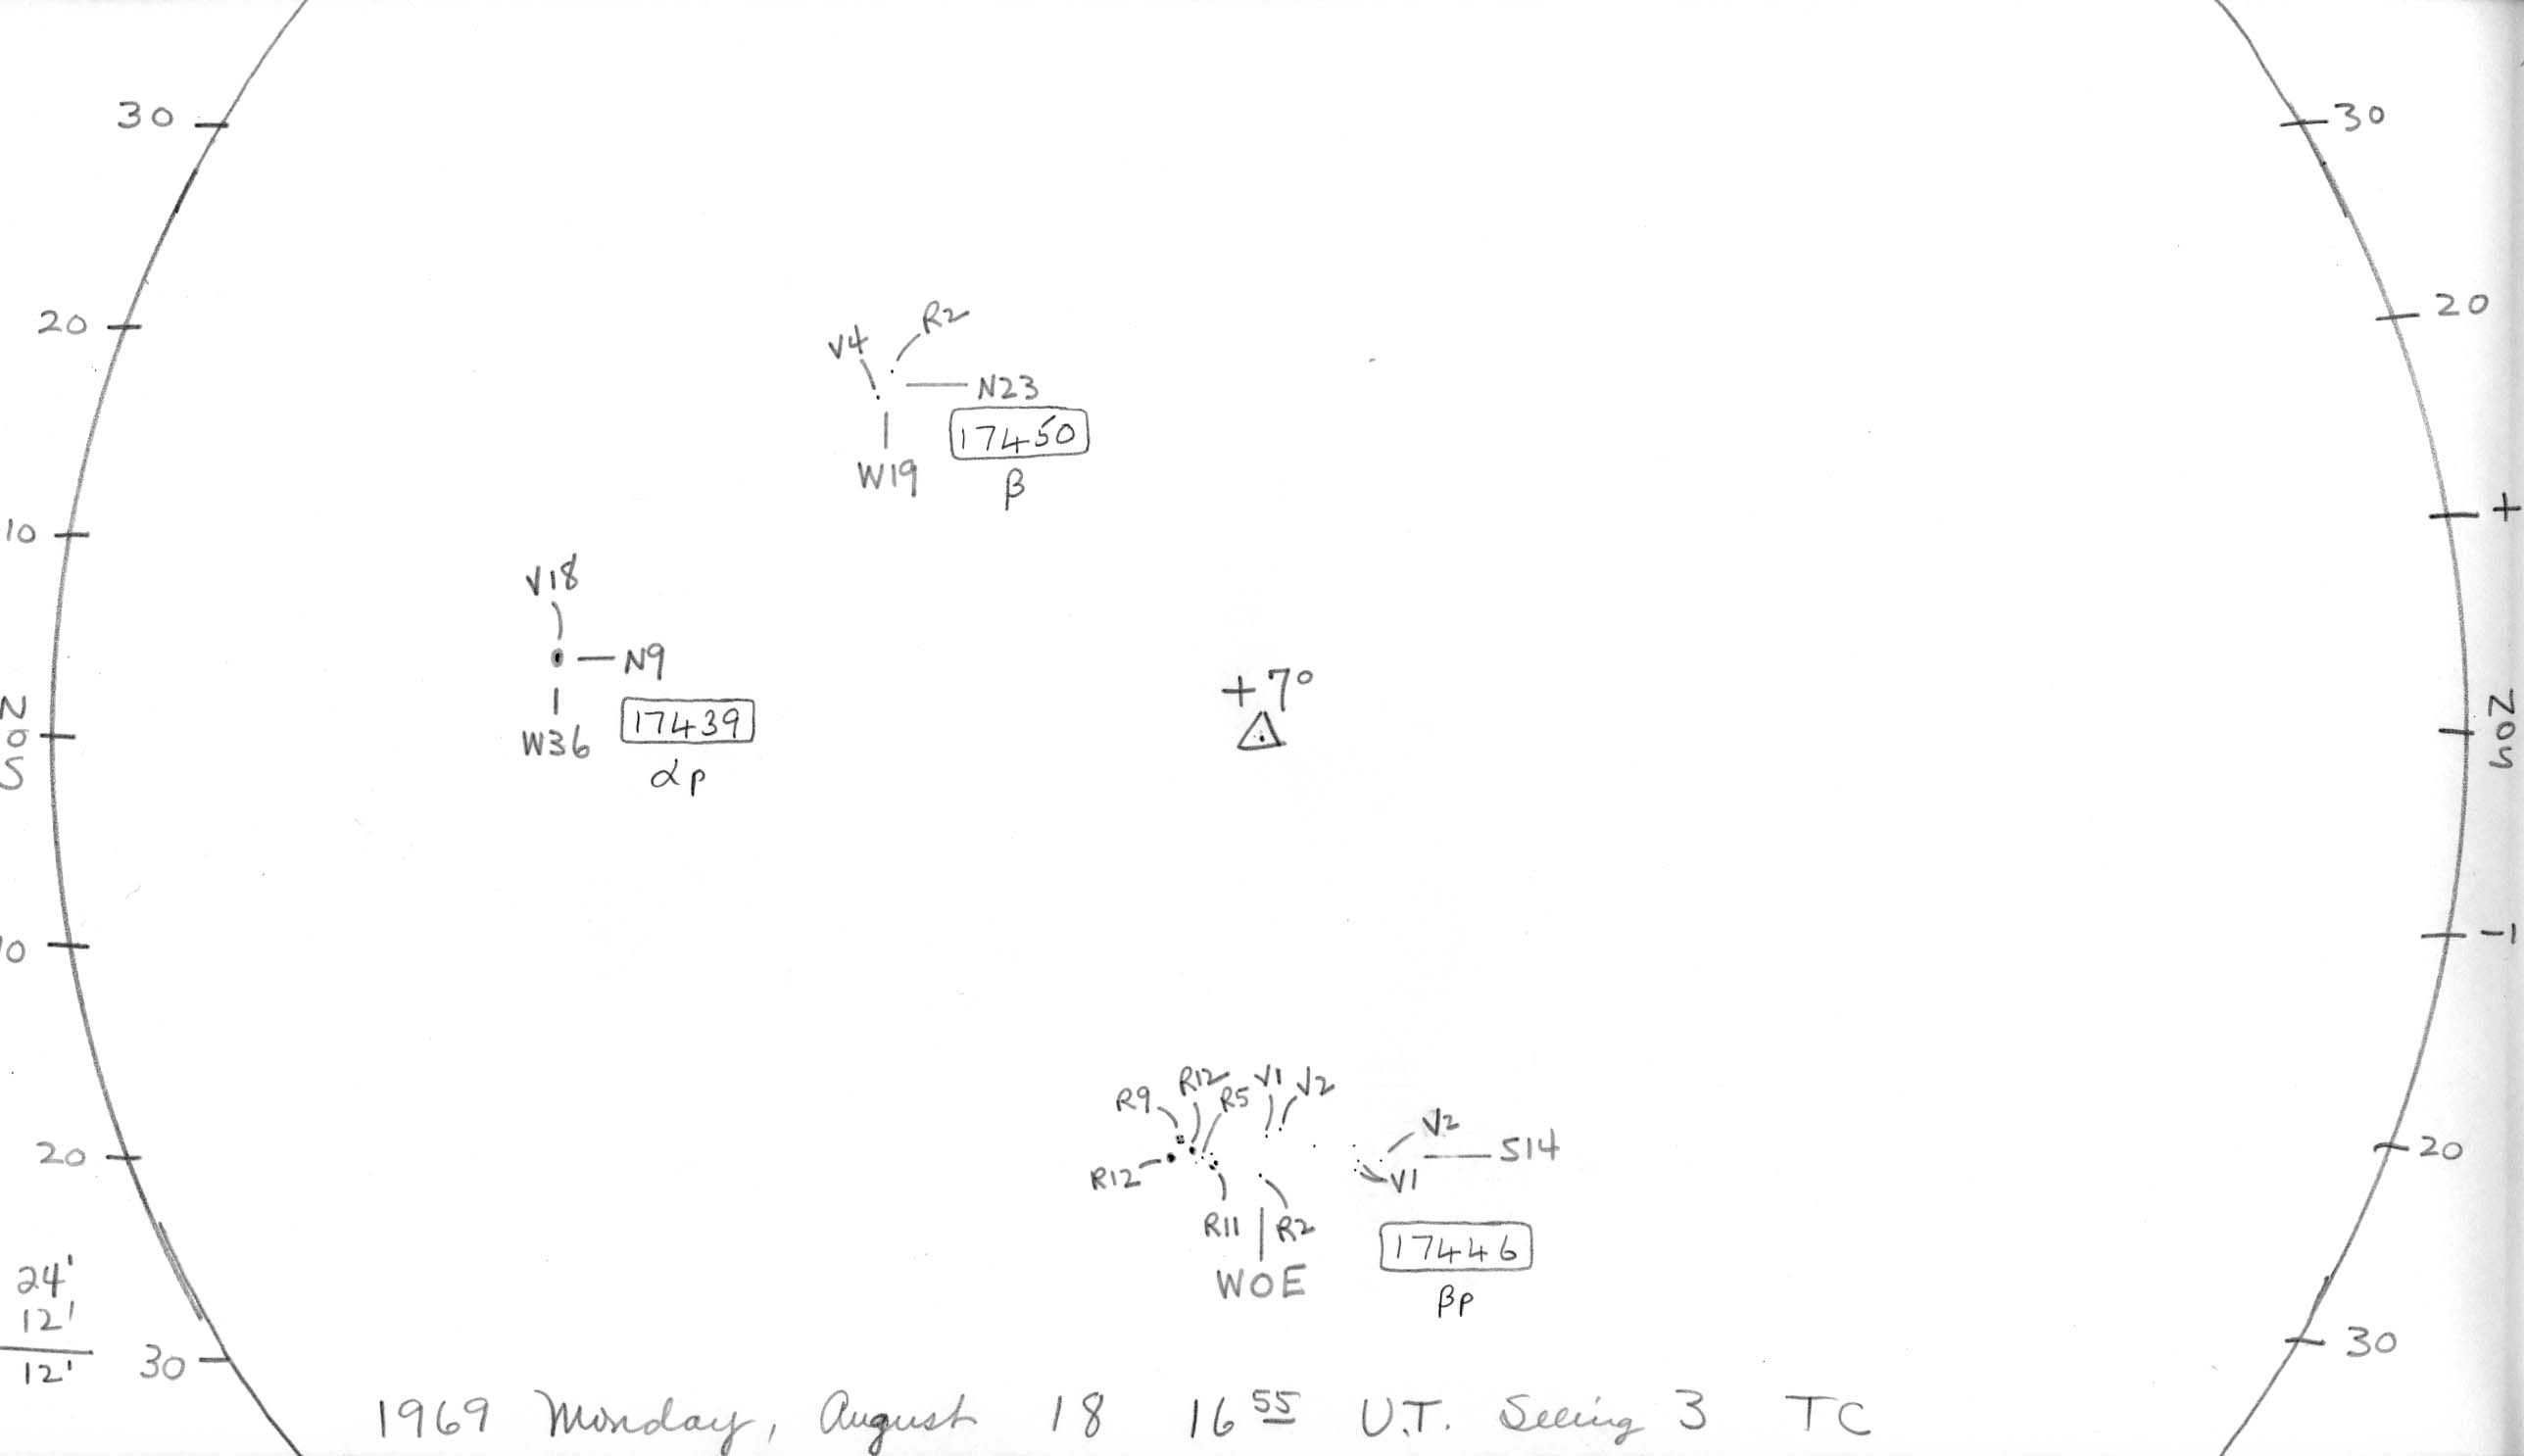 30
30
20
R2
20
V4
N23
17450
W19
β
10
+
V18
N9
W36
17439
αp
+7°
N
0
S
N
0
S
10
-1
R9
R12
R5
V1
V2
V2
S14
R12
V1
20
20
R11
R2
W0E
17446
βp
24'
12'
12'
30
30
1969 Monday, August 18 16 55 U.T. Seeing 3 TC